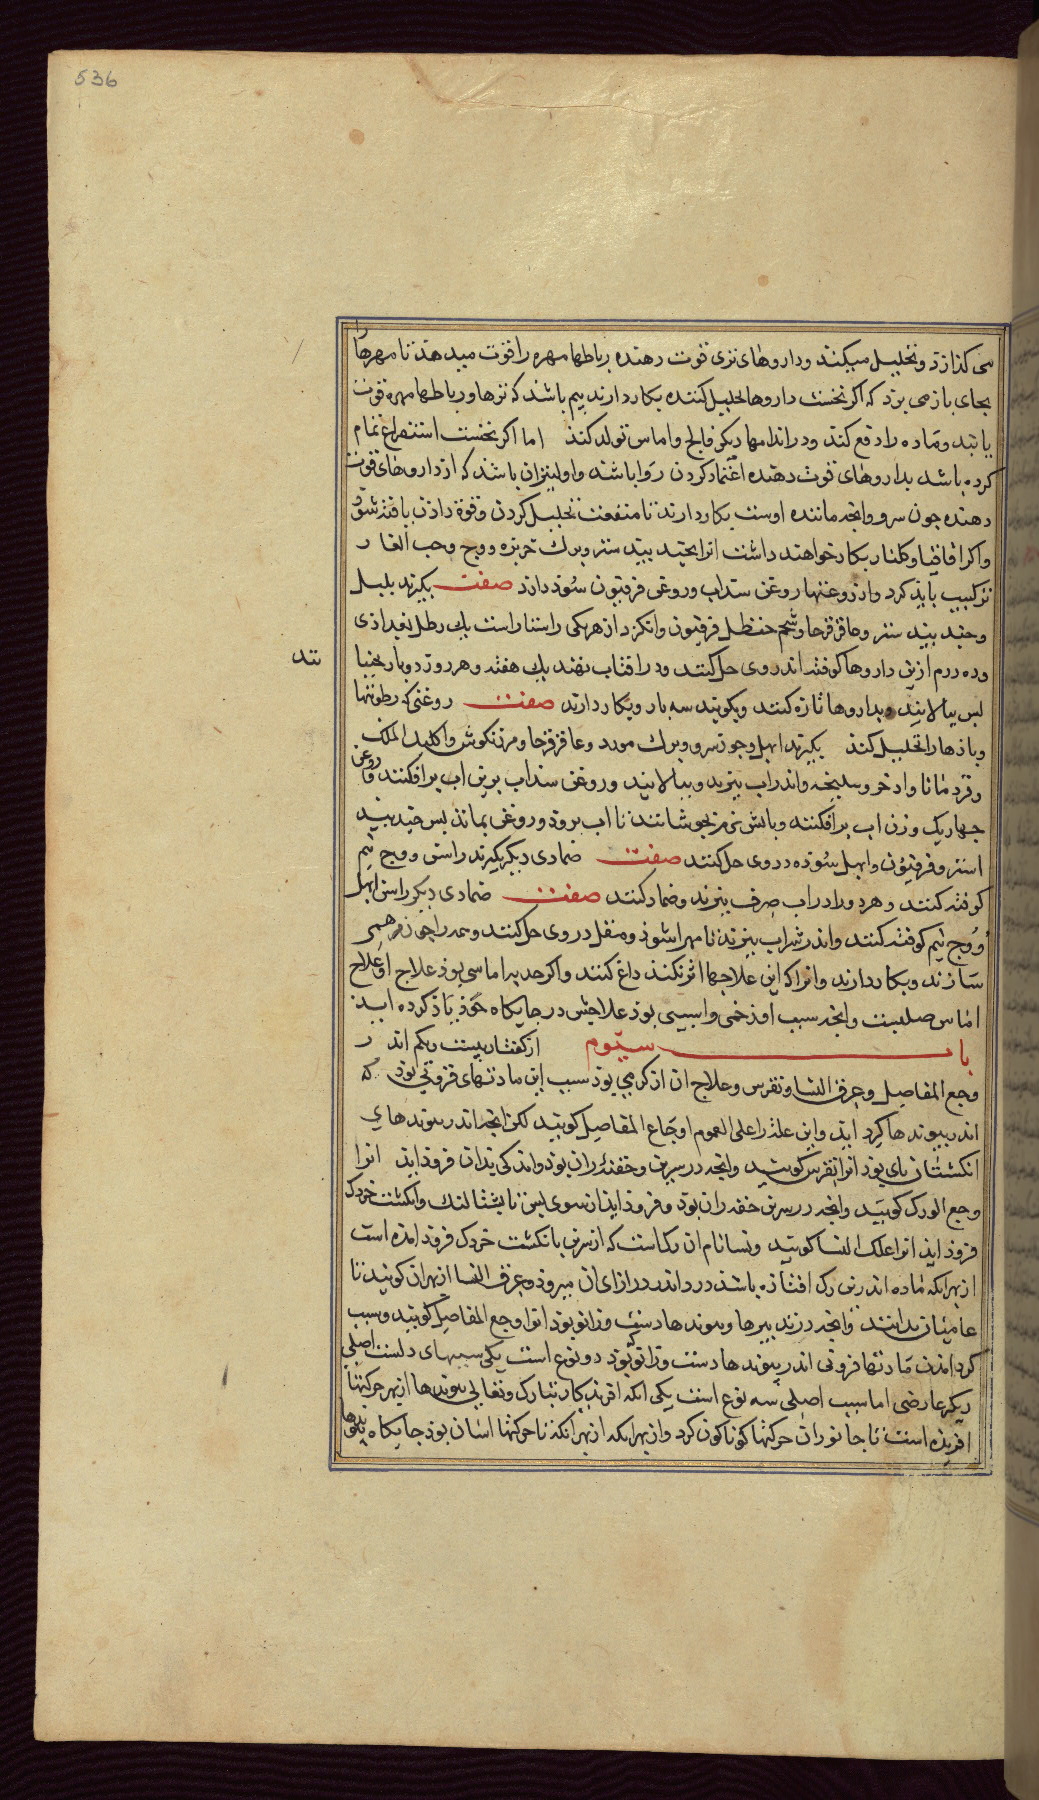 536
می کذازد وتحلیل میکند وداروهای نری قوت دهنده رباطها مهره را قوت میدهد تا مهرها
بجای باز می برد که اکر نخست داروها تحلیل کننده بکار دارند بیم باشد که نرها ورباطها مهره قوت
یابند وماده را دفع کند ودر اندامها دیکر فالج واماس تولد کند اما اکر نخست استفراغ تمام
کرده باشد بداروهای قوت دهنده اعتماد کردن روا باشد واولیتر ان باشد که از داروهای قوت
دهنده چون سرو وانچه ماننده اوست بکار دارند تا منفعت تحلیل کردن وقوة داذن یافته شوذ
واکر اقاقیا وکلنار بکار خواهند داشت انرا بجند بیدستر وبرک خربزه ووج وحب الغار
ترکیب باید کرد واز روغنها روغن سداب وروغن فرفیون سوذ دارد صفت بکیرند پلپل
وجند بیدستر وعاقرقرحا وشحم حنظل فرفیون وانکزد از هریکی راستا راست یک رطل بغداذی
وده درم ازین داروها کوفته اندر وی حل کنند ودر افتاب نهند یک هفته وهر روز دوبار بجنبا
نند
پس بپالایند وبداروها تازه کنند وبکوبند سه بار وبکار دارند صفت روغنی که رطوبتها
وباذها را تحلیل کند بکیرند ابهل وجوز سرو وبرک مورد وعاقرقرحا ومرزنکوش واکلیل الملک
وقردمانا واذخر وسلیخه واندر اب بپزند وبپالایند وروغن سداب برین اب برافکنند
روغن
چهاریک وزن اب برافکنند وباتش نرم بجوشانند تا اب بروذ وروغن بماند پس جند بید
استر وفرفیون وابهل سوده در وی حل کنند صفت ضمادی دیکر بکیرند راسن ووج نیم
کوفته کنند وهردو را در اب صرف بپزند وضماد کنند صفت ضمادی دیکر راسن ابهل
ووج نیم کوفته کنند واندر شراب بپزند تا مهرا شوذ ومقل در وی حل کنند وهمه را چون مرهمی
سازند وبکار دارند وانرا که این علاجها اثر نکند داغ کنند واکر حدبه اماسی بوذ علاج او علاج
اماس صلبست وانچه سبب او زخمی واسیبی بوذ علاجش در جایکاه خوذ یاذ کرده ایذ
باب سیوم از کفتار بیست ویکم اندر
وجع المفاصل وعرق النسا ونقرس وعلاج ان از کرمی بوذ سبب این مادتهای فزونی بوذ که
اندر پیوندها کرد اید واین علت را علی العموم اوجاع المفاصل کویند لکن انچه اندر پیوندهای
انکشتان پای بوذ انرا نقرس کویند وانچه در سرین وحقهٔ ران بوذ واندکی بدان فروذ اید انرا
وجع الورک کویند وانچه در سرین حقه ران بوذ وفروذ اید از سوی پس تا بشتالنک وانکشت خردک
فروذ ایذ انرا علت النسا کویند ونسا نام ان رکاست که از سرین بانکشت خردک فروذ امده است
از بهر انکه ماده اندرین رک افتاذه باشد درد اندر درازای ان میروذ وعرق النسا از بهر ان کویند تا
عامیان بدانند وانچه درزند بیرها وپیوندها دست وزانو بوذ انرا وجع المفاصل کویند وسبب
کرد امدن مادتها فزونی اندر پیوندها دست وزانو که بوذ دو نوع است یکی سببهای دلست اصلی
دیکر عارضی اما سبب اصلی سه نوع است یکی انکه افریدکار تبارک وتعالی پیوندها از بهر حرکتها
افریده است تا جانوران حرکتها کوناکون کرد واز بهر انکه از بهر انکه تا حرکتها اسان بوذ جایکاه پیوندها